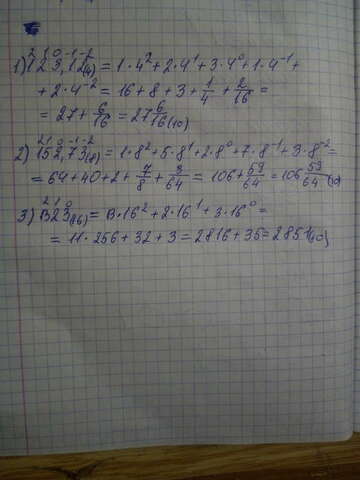 2 1 0 -1 -2
1) 123,12(4) = 1·4² + 2·4¹ + 3·4⁰ + 1·4⁻¹ +
+ 2·4⁻² = 16 + 8 + 3 + 1/4 + 2/16 =
= 27 + 6/16 = 27 6/16(10)
2 1 0 -1 -2
2) 152,73(8) = 1·8² + 5·8¹ + 2·8⁰ + 7·8⁻¹ + 3·8⁻² =
= 64 + 40 + 2 + 7/8 + 3/64 = 106 + 59/64 = 106 59/64(10)
2 1 0
3) B23(16) = B·16² + 2·16¹ + 3·16⁰ =
= 11·256 + 32 + 3 = 2816 + 35 = 2851(10)